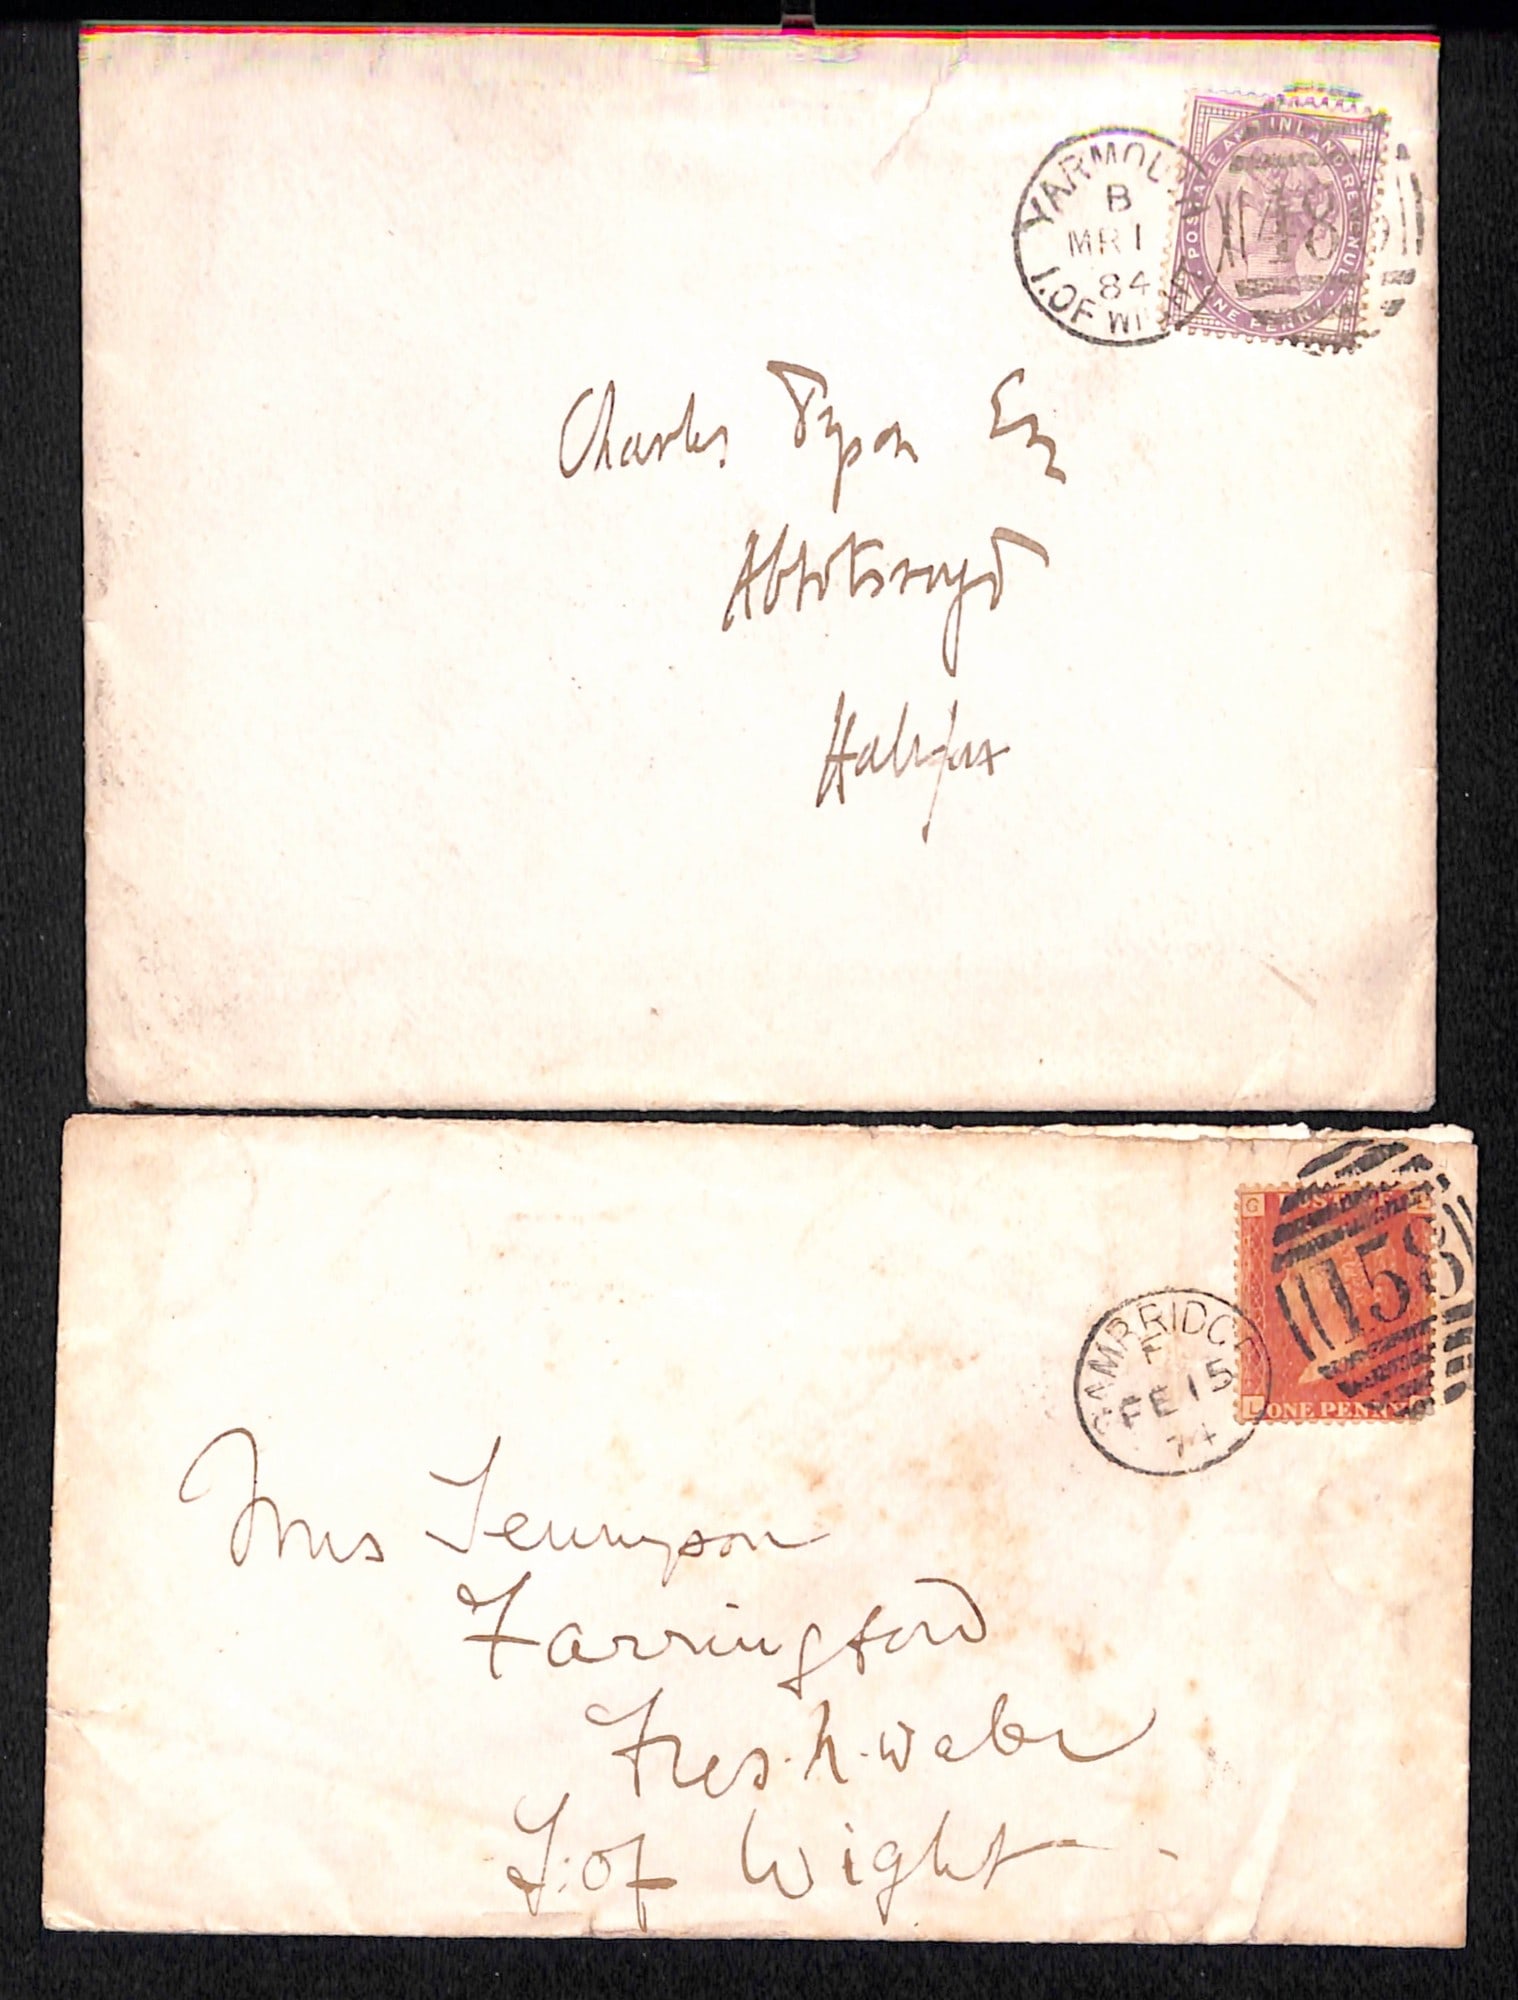 YARMOUTH
B
MR 1
84
I. OF WIGHT
POSTAGE AND INLAND REVENUE
ONE PENNY
48
Charles Tyson Esq
Abbotsroyd
Halifax
G
158
CAMBRIDGE
F
FE 15
74
L
ONE PENNY
Mrs Tennyson
Farringford
Freshwater
I: of Wight